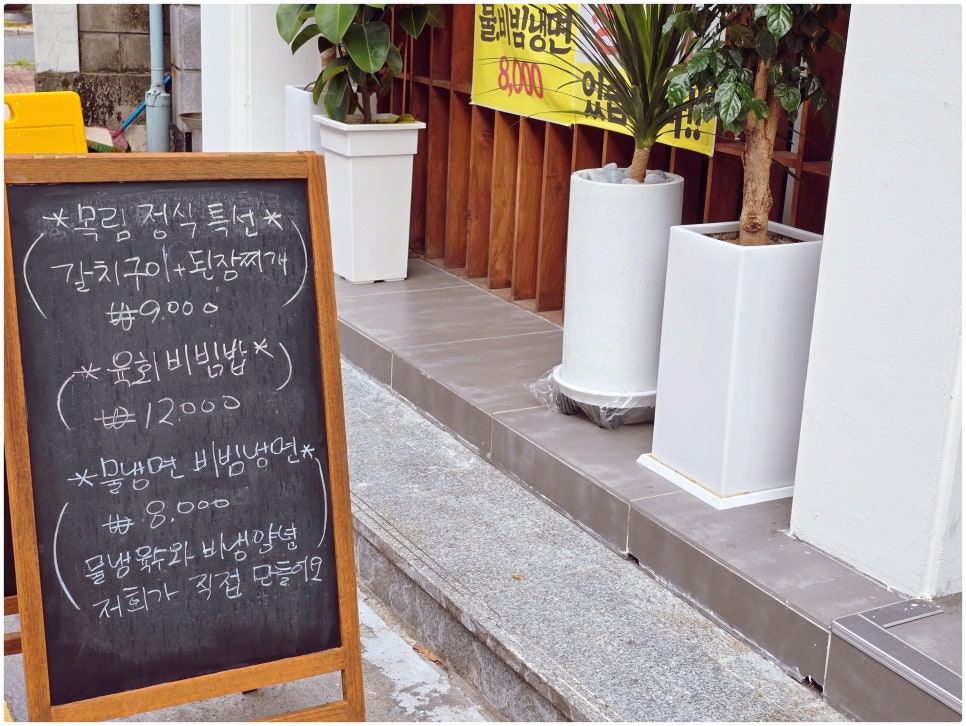 *목림 정식 특선*
(갈치구이+된장찌개)
₩9.000
*육회비빔밥*
₩12.000
*물냉면 비빔냉면*
₩8.000
물냉육수와 비냉양념
저희가 직접 만들어요
물.비빔냉면
8,000